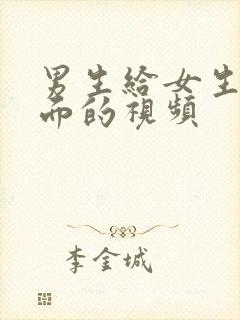 男生給女生
而的視頻
李金城